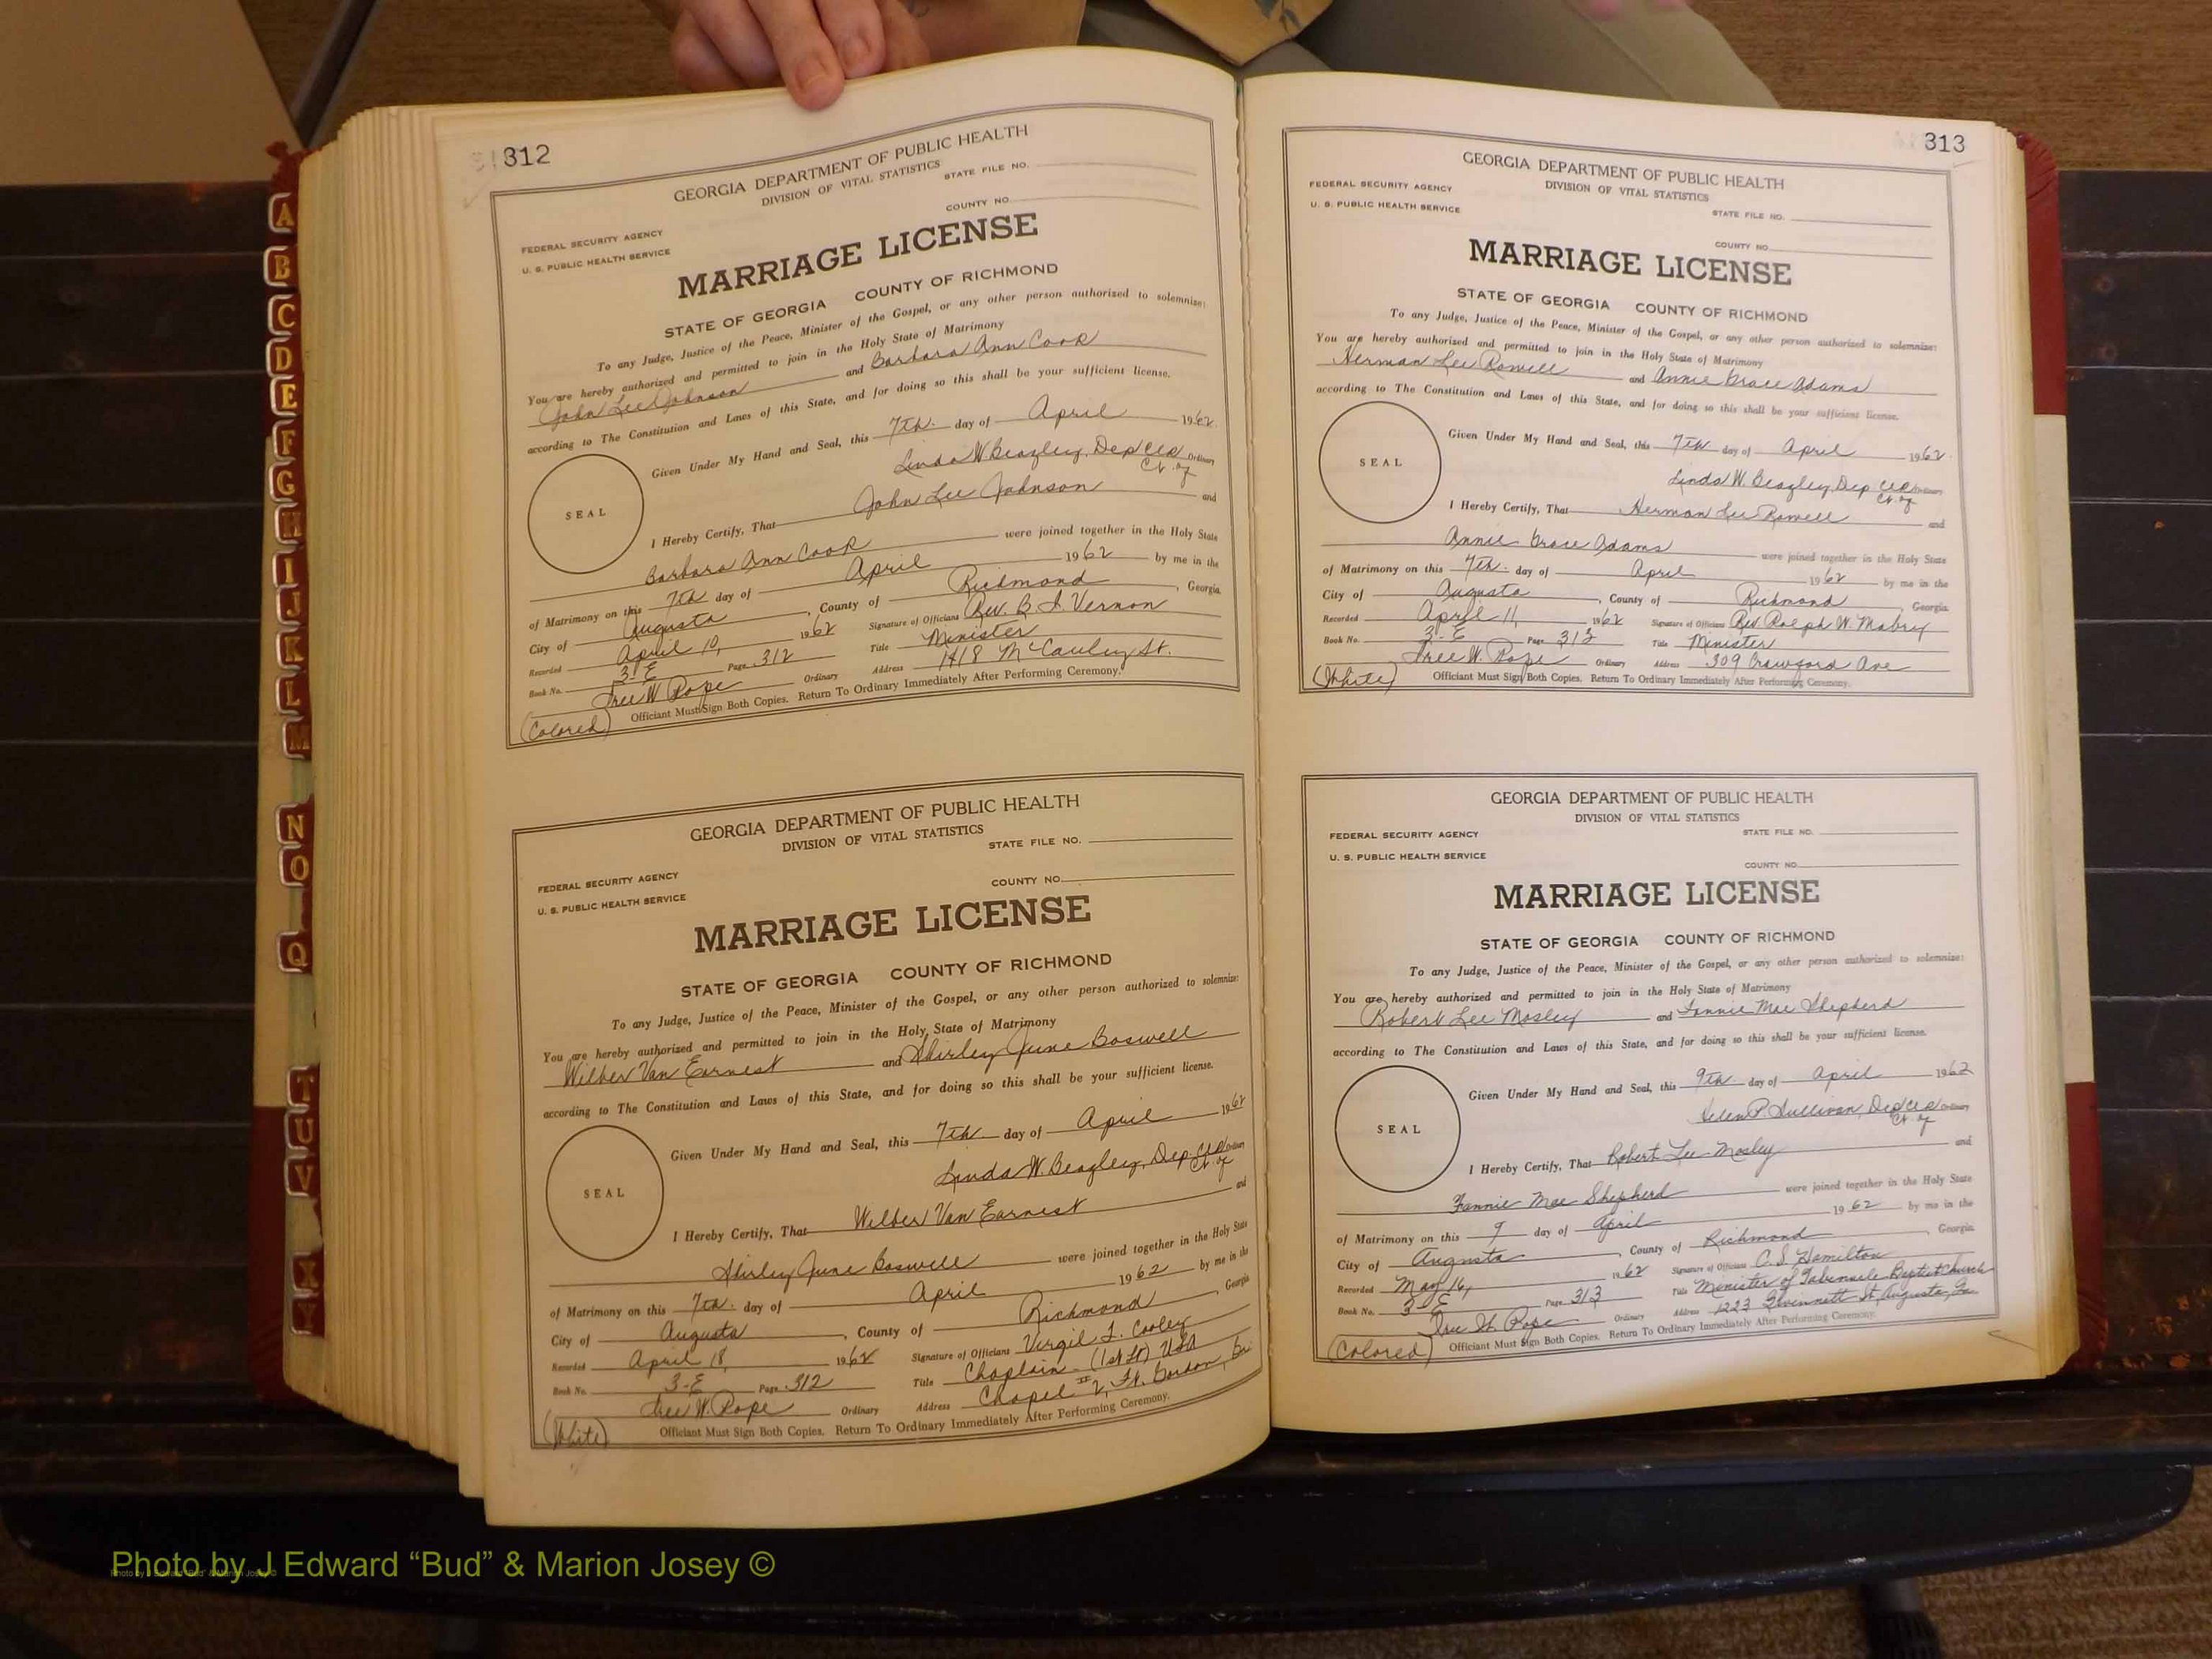 312
GEORGIA DEPARTMENT OF PUBLIC HEALTH
DIVISION OF VITAL STATISTICS
STATE FILE NO.
COUNTY NO.
FEDERAL SECURITY AGENCY
U. S. PUBLIC HEALTH SERVICE
MARRIAGE LICENSE
STATE OF GEORGIA COUNTY OF RICHMOND
To any Judge, Justice of the Peace, Minister of the Gospel, or any other person authorized to solemnize:
You are hereby authorized and permitted to join in the Holy State of Matrimony
John Lee Johnson and Barbara Ann Cook
according to The Constitution and Laws of this State, and for doing so this shall be your sufficient license.
Given Under My Hand and Seal, this 7th. day of April 1962.
Linda W. Beazley, Dep Clk Ordinary
Ct. of
SEAL
I Hereby Certify, That John Lee Johnson and
Barbara Ann Cook were joined together in the Holy State
of Matrimony on this 7th day of April 1962 by me in the
City of Augusta, County of Richmond, Georgia.
Recorded April 10, 1962 Signature of Officiant Rev. B. J. Vernon
Book No. 3-E Page 312 Title Minister
Tree W. Pope Ordinary Address 1418 McCauley St.
(Colored) Officiant Must Sign Both Copies. Return To Ordinary Immediately After Performing Ceremony.
GEORGIA DEPARTMENT OF PUBLIC HEALTH
DIVISION OF VITAL STATISTICS
STATE FILE NO.
COUNTY NO.
FEDERAL SECURITY AGENCY
U. S. PUBLIC HEALTH SERVICE
MARRIAGE LICENSE
STATE OF GEORGIA COUNTY OF RICHMOND
To any Judge, Justice of the Peace, Minister of the Gospel, or any other person authorized to solemnize:
You are hereby authorized and permitted to join in the Holy State of Matrimony
Wilber Van Earnest and Shirley June Boswell
according to The Constitution and Laws of this State, and for doing so this shall be your sufficient license.
Given Under My Hand and Seal, this 7th day of April 1962
Linda W. Beazley, Dep. Clk Ordinary
Ct. of
SEAL
I Hereby Certify, That Wilber Van Earnest and
Shirley June Boswell were joined together in the Holy State
of Matrimony on this 7th. day of April 1962 by me in the
City of Augusta, County of Richmond, Georgia
Recorded April 18, 1962 Signature of Officiant Virgil L. Cooley
Book No. 3-E Page 312 Title Chaplain - (1st Lt) USA
Tree W. Pope Ordinary Address Chapel II 2, Ft. Gordon, Ga
(White) Officiant Must Sign Both Copies. Return To Ordinary Immediately After Performing Ceremony.
313
GEORGIA DEPARTMENT OF PUBLIC HEALTH
DIVISION OF VITAL STATISTICS
FEDERAL SECURITY AGENCY
U. S. PUBLIC HEALTH SERVICE
STATE FILE NO.
COUNTY NO.
MARRIAGE LICENSE
STATE OF GEORGIA COUNTY OF RICHMOND
To any Judge, Justice of the Peace, Minister of the Gospel, or any other person authorized to solemnize:
You are hereby authorized and permitted to join in the Holy State of Matrimony
Herman Lee Rowell and Annie Grace Adams
according to The Constitution and Laws of this State, and for doing so this shall be your sufficient license.
Given Under My Hand and Seal, this 7th day of April 1962.
Linda W. Beazley, Dep Clk Ordinary
Ct. of
SEAL
I Hereby Certify, That Herman Lee Rowell and
Annie Grace Adams were joined together in the Holy State
of Matrimony on this 7th. day of April 1962 by me in the
City of Augusta, County of Richmond, Georgia.
Recorded April 11, 1962 Signature of Officiant Rev Ralph W. Mabry
Book No. 3-E Page 313 Title Minister
Tree W. Pope Ordinary Address 309 Crawford Ave
(White) Officiant Must Sign Both Copies. Return To Ordinary Immediately After Performing Ceremony.
GEORGIA DEPARTMENT OF PUBLIC HEALTH
DIVISION OF VITAL STATISTICS
FEDERAL SECURITY AGENCY
STATE FILE NO.
U. S. PUBLIC HEALTH SERVICE
COUNTY NO.
MARRIAGE LICENSE
STATE OF GEORGIA COUNTY OF RICHMOND
To any Judge, Justice of the Peace, Minister of the Gospel, or any other person authorized to solemnize:
You are hereby authorized and permitted to join in the Holy State of Matrimony
Robert Lee Mosley and Fannie Mae Shepherd
according to The Constitution and Laws of this State, and for doing so this shall be your sufficient license.
Given Under My Hand and Seal, this 9th day of April 1962
Helen P. Sullivan, Dep Clk Ordinary
Ct. of
SEAL
I Hereby Certify, That Robert Lee Mosley and
Fannie Mae Shepherd were joined together in the Holy State
of Matrimony on this 9 day of April 1962 by me in the
City of Augusta, County of Richmond, Georgia.
Recorded May 16, 1962 Signature of Officiant C. S. Hamilton
Book No. 3-E Page 313 Title Minister of Tabernacle Baptist Church
Tree W. Pope Ordinary Address 1223 Gwinnett St, Augusta, Ga.
(Colored) Officiant Must Sign Both Copies. Return To Ordinary Immediately After Performing Ceremony.
A
B
C
D
E
F
G
H
I
J
K
L
M
N
O
Q
T
U
V
X
Y
Photo by J Edward “Bud” & Marion Josey ©
Photo by J Edward “Bud” & Marion Josey ©